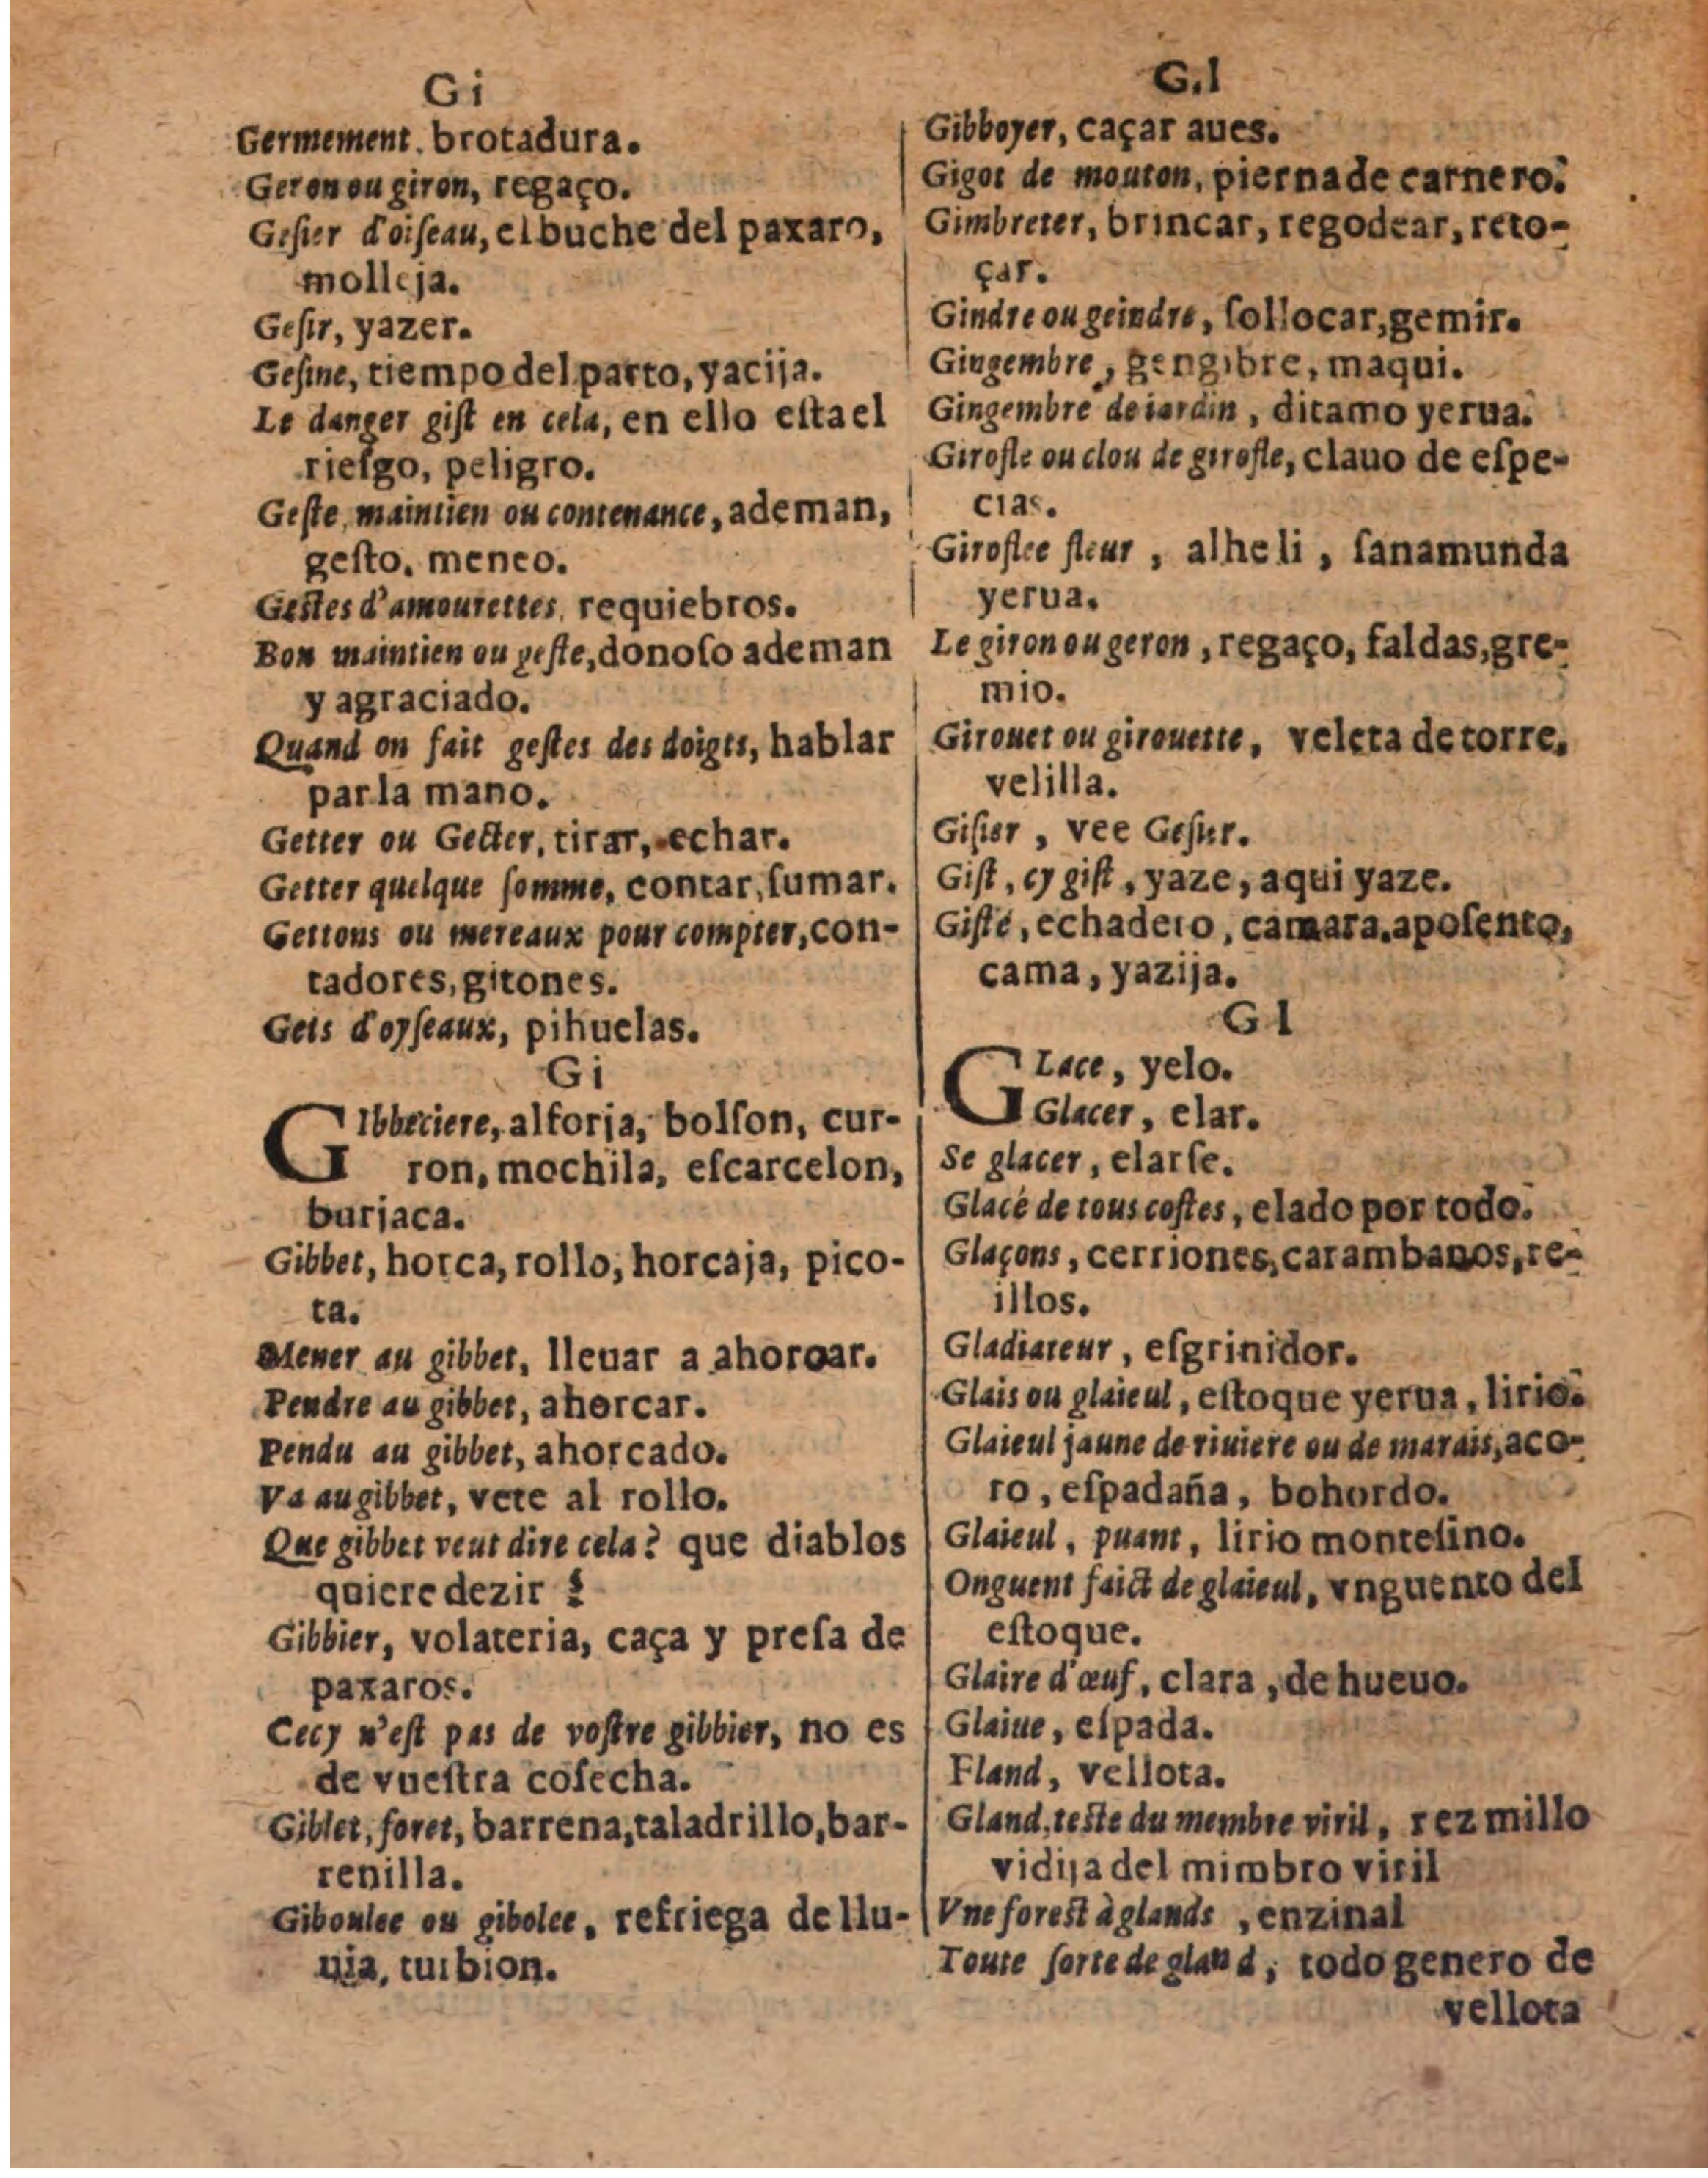 Gi
Germement, brotadura.
Geron ou giron, regaço.
Gesier d'oiſeau, el buche del paxaro,
molleja.
Geſir, yazer.
Geſine, tiempo del parto, yacija.
Le danger giſt en cela, en ello eſta el
rieſgo, peligro.
Geſte, maintien ou contenance, ademan,
geſto, meneo.
Geſtes d'amourettes, requiebros.
Bon maintien ou geſte, donoſo ademan
y agraciado.
Quand on fait geſtes des doigts, hablar
par la mano.
Getter ou Gecter, tirar, echar.
Getter quelque ſomme, contar, ſumar.
Gettons ou mereaux pour compter, con-
tadores, gitones.
Gets d'oyſeaux, pihuelas.
Gi
GIbbeciere, alforja, bolſon, cur-
ron, mochila, eſcarcelon,
burjaca.
Gibbet, horca, rollo, horcaja, pico-
ta.
Mener au gibbet, lleuar a ahoroar.
Pendre au gibbet, ahorcar.
Pendu au gibbet, ahorcado.
Va au gibbet, vete al rollo.
Que gibbet veut dire cela? que diablos
quiere dezir ?
Gibbier, volateria, caça y preſa de
paxaros.
Cecy n'eſt pas de voſtre gibbier, no es
de vueſtra coſecha.
Giblet, foret, barrena, taladrillo, bar-
renilla.
Giboulee ou gibolee, refriega de llu-
uia, turbion.
G.l
Gibboyer, caçar aues.
Gigot de mouton, pierna de carnero.
Gimbreter, brincar, regodear, reto-
çar.
Gindre ou geindre, ſollocar, gemir.
Gingembre, gengibre, maqui.
Gingembre de iardin, ditamo yerua.
Girofle ou clou de girofle, clauo de eſpe-
cias.
Giroflee fleur, alheli, ſanamunda
yerua.
Le giron ou geron, regaço, faldas, gre-
mio.
Girouet ou girouette, veleta de torre,
velilla.
Giſier, vee Geſier.
Giſt, cy giſt, yaze, aqui yaze.
Giſté, echadero, camara, apoſento,
cama, yazija.
Gl
GLace, yelo.
Glacer, elar.
Se glacer, elarſe.
Glacé de tous coſtes, elado por todo.
Glaçons, cerriones, carambanos, re-
illos.
Gladiateur, eſgrinidor.
Glais ou glaieul, eſtoque yerua, lirio.
Glaieul jaune de riuiere ou de marais, aco-
ro, eſpadaña, bohordo.
Glaieul, puant, lirio monteſino.
Onguent faict de glaieul, vnguento del
eſtoque.
Glaire d'œuf, clara, de hueuo.
Glaiue, eſpada.
Fland, vellota.
Gland, teſte du membre viril, rezmillo
vidija del mimbro viril
Vne foreſt à glands, enzinal
Toute ſorte de gland, todo genero de
vellota